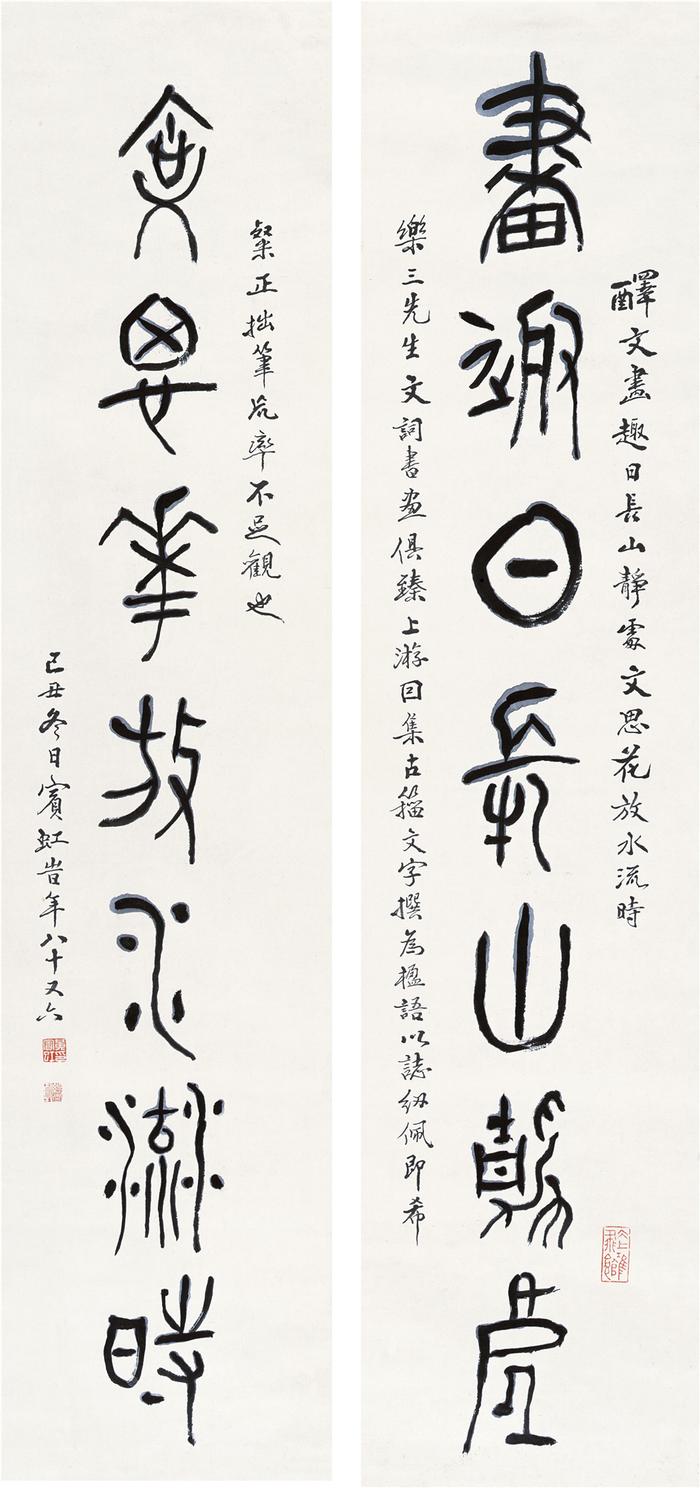 醳文畫趣日長山靜處文思花放水流時
畫趣日長山靜處
樂三先生文詞書画俱臻上游囙集古籀文字撰為楹語以誌紉佩即希
粲正拙筆荒率不足觀也
文思華放水流時
己丑冬日賓虹旹年八十又六